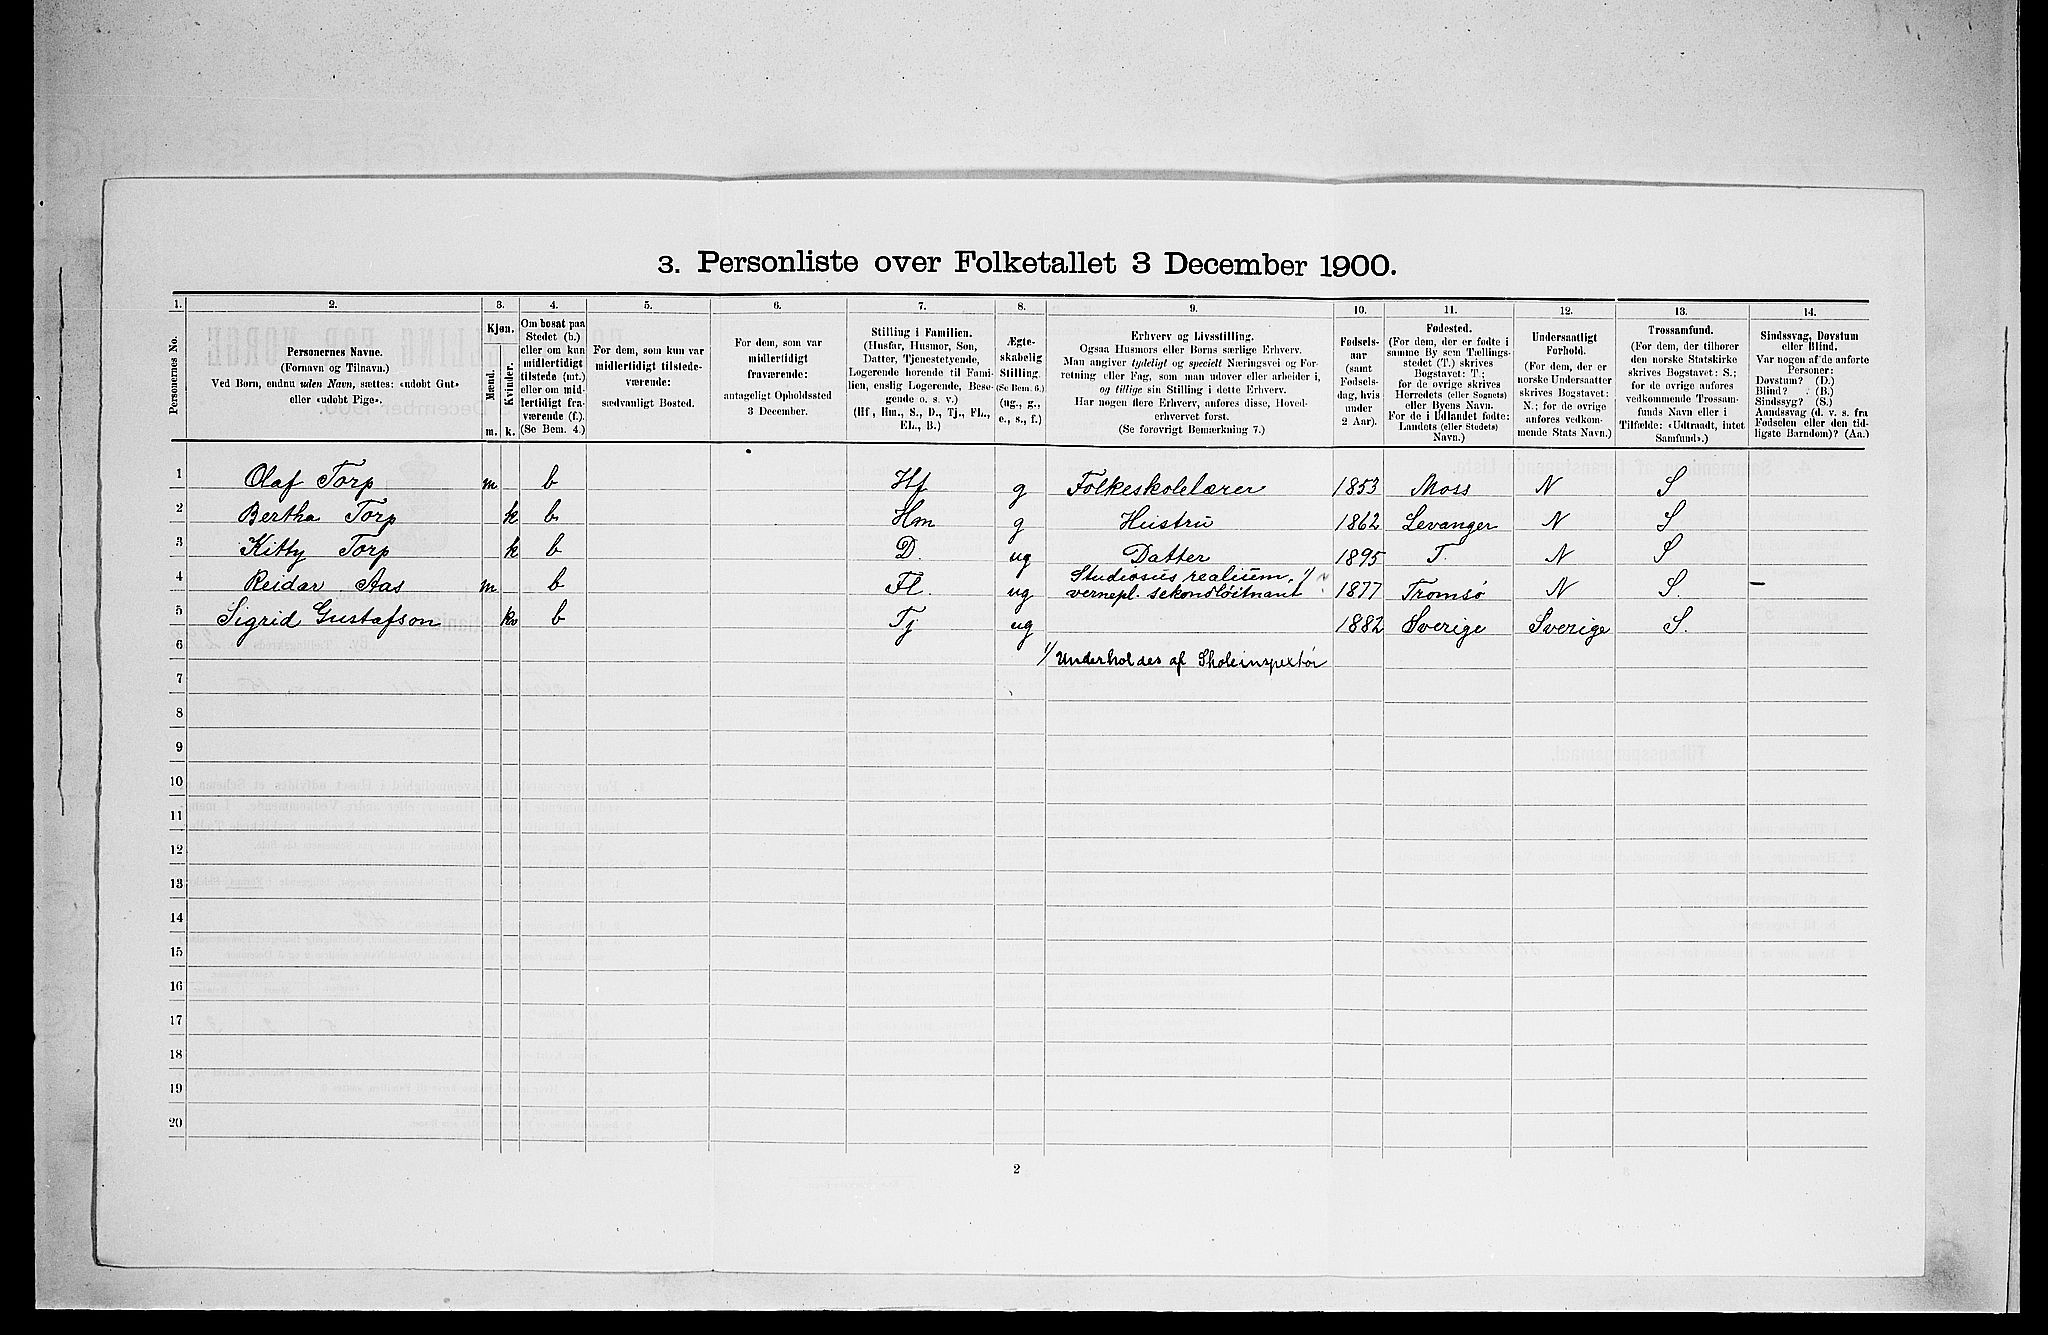 3. Personliste over Folketallet 3 December 1900.
1. 2. 3. 4. 5. 6. 7. 8. 9. 10. 11. 12. 13. 14.
Personernes No.
Personernes Navne.
(Fornavn og Tilnavn.)
Ved Børn, endnu uden Navn, sættes: «udøbt Gut»
eller «udøbt Pige».
Kjøn.
Mænd.
Kvinder.
m. k.
Om bosat paa
Stedet (b.)
eller om kun
midlertidigt
tilstede (mt.)
eller om mid-
lertidigt fra-
værende (f.).
(Se Bem. 4.)
For dem, som kun var
midlertidigt tilstede-
værende:
sædvanligt Bosted.
For dem, som var
midlertidigt
fraværende:
antageligt Opholdssted
3 December.
Stilling i Familien.
(Husfar, Husmor, Søn,
Datter, Tjenestetyende,
Logerende hørende til Fami-
lien, enslig Logerende, Besø-
gende o. s. v.)
(Hf., Hm., S., D., Tj., FL.,
EL., B.)
Ægte-
skabelig
Stilling.
(Se Bem. 6.)
(ug., g.,
e., s., f.)
Erhverv og Livsstilling.
Ogsaa Husmors eller Børns særlige Erhverv.
Man angiver tydeligt og specielt Næringsvei og For-
retning eller Fag, som man udøver eller arbeider i,
og tillige sin Stilling i dette Erhverv.
Har nogen flere Erhverv, anføres disse, Hoved-
erhvervet først.
(Se forøvrigt Bemærkning 7.)
Fødsels-
aar
(samt
Fødsels-
dag, hvis
under
2 Aar).
Fødested.
(For dem, der er fødte i
samme By sem Tællings-
stedet (T.) skrives
Bogstavet: T.;
for de øvrige skrives
Herredets (eller Sognets)
eller Byens Navn.
For de i Udlandet fødte:
Landets (eller Stedets)
Navn.)
Undersaatligt
Forhold.
(For dem, der er
norske Undersaatter
skrives Bogstavet:
N.; for de øvrige
anføres vedkom-
mende Stats Navn.)
Trossamfund.
(For dem, der tilhører
den norske Statskirke
skrives Bogstavet: S.;
for de øvrige anføres
vedkommende Trossam-
funds Navn eller i
Tilfælde: «Udtraadt, intet
Samfund».)
Sindssvag, Døvstum
eller Blind.
Var nogen af de anførte
Personer:
Døvstum? (D.)
Blind? (B.)
Sindssyg? (S.)
Aandssvag (d. v. s. fra
Fødselen eller den tid-
ligste Barndom)? (Aa.)
1 Olaf Torp m b Hf g Folkeskolelærer 1853 Moss N S
2 Bertha Torp k b Hm g Hustru 1862 Levanger N S
3 Kitty Torp k b D. ug Datter 1895 T. N S
4 Reidar Aas m b Fl. ug Studiosus realium. 1)
vernepl. sekondløitnant 1877 Tromsø N S. –
5 Sigrid Gustafson k b Tj ug 1882 Sverige Sverige S.
6 1) Underholdes af Skoleinspektør
7
8
9
10
11
12
13
14
15
16
17
18
19
20
2